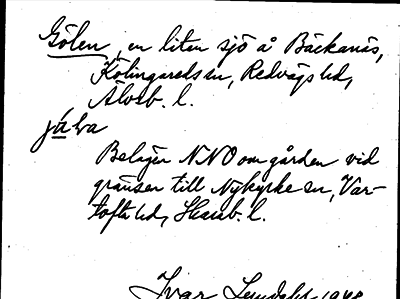 Gölen, en liten sjö å Bäckanäs,
Kölingareds sn, Redvägs hd,
Älvsb. l.
jä̀lva
Belägen NNO om gården vid
gränsen till Nykyrke sn, Var-
tofta hd, Skarab. l.
Ivar Lundahl 1948